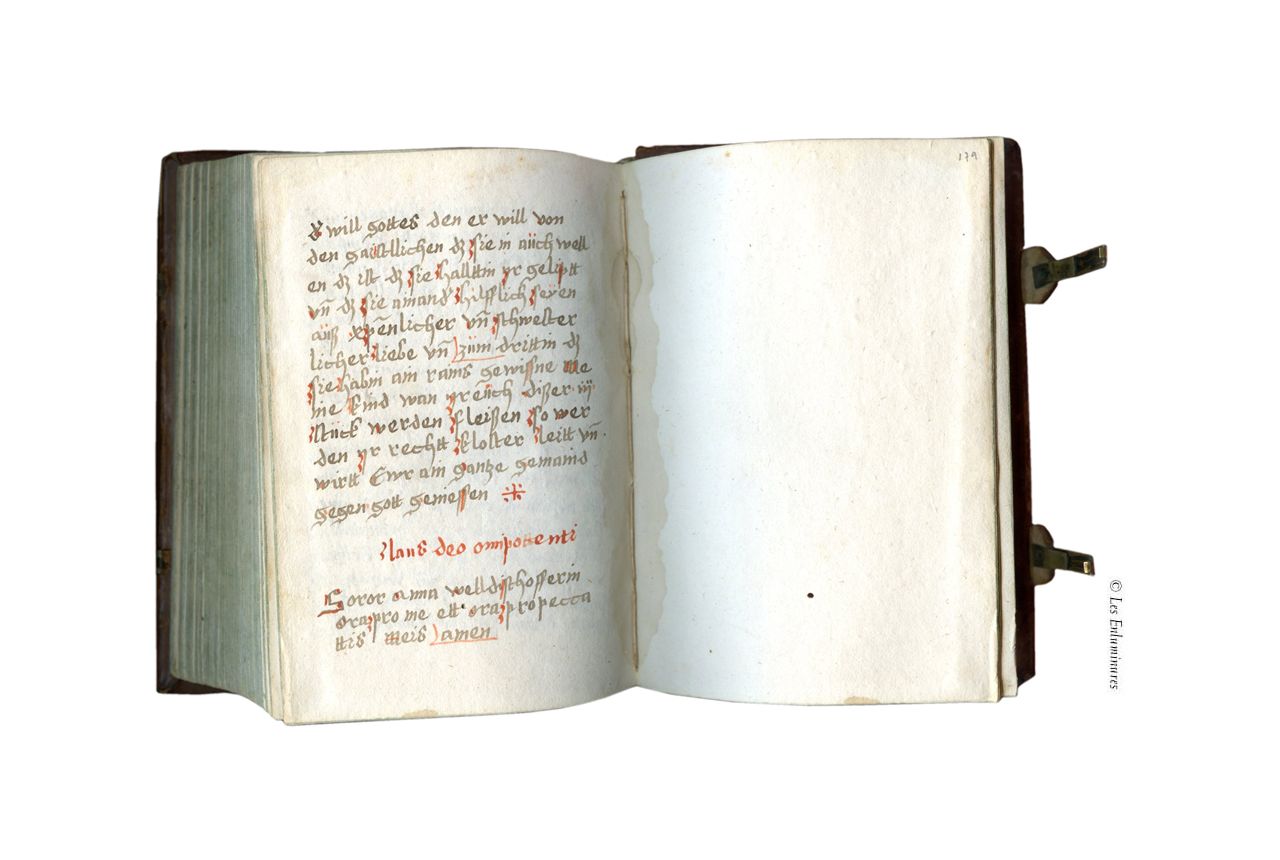 d will gottes den er will von
den gaistlichen dz sie in auch well
en dz ist dz sie halltin yr gelipt
vn̄ dz sie amand hilfflich seyen
auß xp̄enlicher vn̄ schwester
licher liebe vn̄ züm drittin dz
sie habin ain rains gewißne
ine kind wan yr eüch dißer iij
stück werden fleißen so wer
den yr recht kloster leitt vn̄
wirtt Ewr ain gantze gemaind
gegen gott geniessen
laus deo omipottenti
Soror anna welldishofferin
ora pro me ett ora pro pecca
ttis meis amen
179
© Les Enluminures